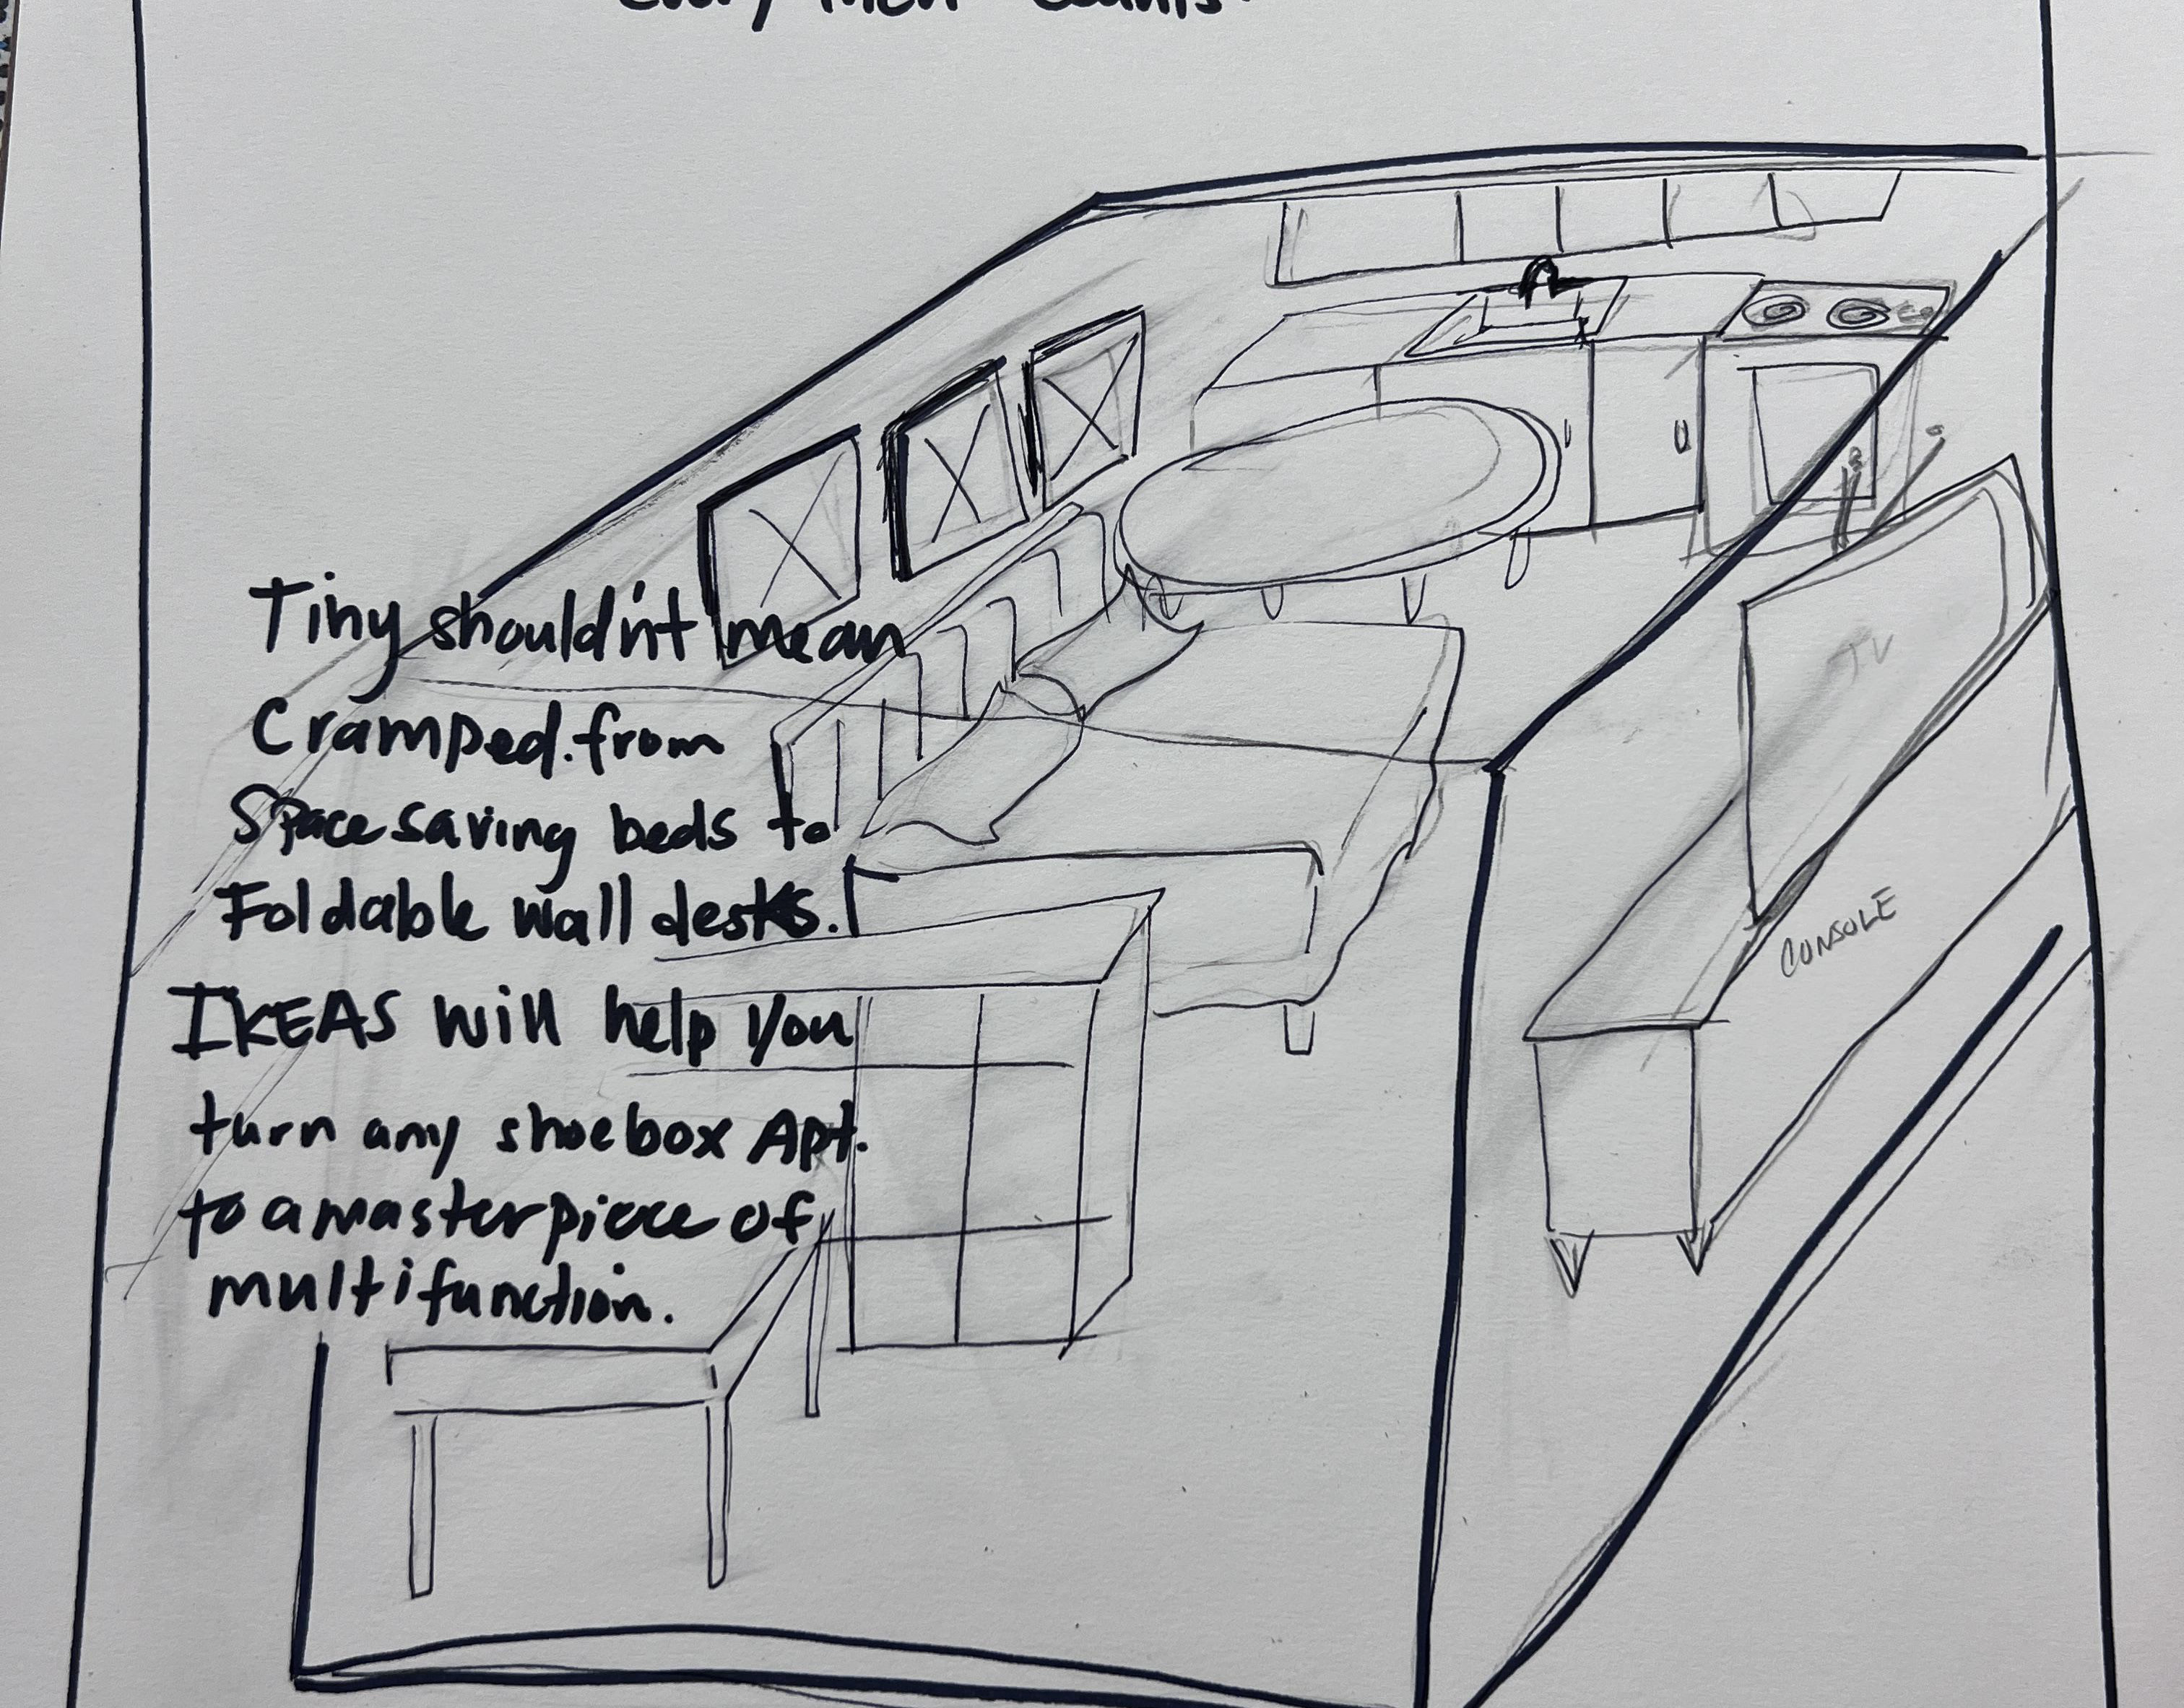 Every inch counts.
Tiny shouldn't mean
Cramped. from
Space saving beds to
Foldable wall desks.
IKEAS will help you
turn any shoebox Apt.
to a masterpiece of
multifunction.
TV
CONSOLE